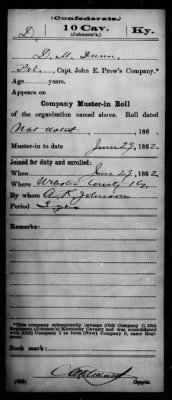 (Confederate.)
D 10 Cav. Ky.
(Johnson's.)
D. M. Dunn
Pvt., Capt. John E. Prow's Company.*
Age years.
Appears on
Company Muster-in Roll
of the organization named above. Roll dated
Not dated, 186 .
Muster-in to date June 29, 1862
Joined for duty and enrolled:
When June 29, 1862
Where Webster County Ky.
By whom A. R. Johnson
Period 3 yrs
Remarks:
*This company subsequently became
Regiment (Johnson's) Kentucky Cavalry and was consolidated
with (Old) Company I to form (New) Company C, same Regi-
ment.
Book mark:
Copyist.